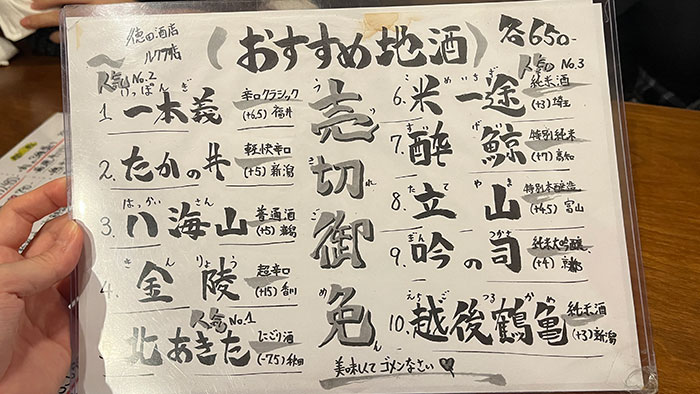 徳田酒店
ルクア店
(おすすめ地酒)
各650-
人気No.2
いっぽんぎ
1. 一本義
辛口クラシック
(+6.5) 福井
2. たかの井
軽快辛口
(+5) 新潟
はっかいさん
3. 八海山
普通酒
(+5) 新潟
きんりょう
4. 金陵
超辛口
(+15) 香川
人気No.1
北あきた
にごり酒
(-25) 秋田
うりきれごめん
売切御免
人気No.3
こめいちず
6. 米一途
純米酒
(+3) 埼玉
7. 酔鯨
特別純米
(+7) 高知
たてやま
8. 立山
特別本醸造
(+4.5) 富山
ぎんのつかさ
9. 吟の司
純米大吟醸
(+4) 京都
えちごつるかめ
10. 越後鶴亀
純米酒
(+3) 新潟
美味しくてゴメンなさい♥